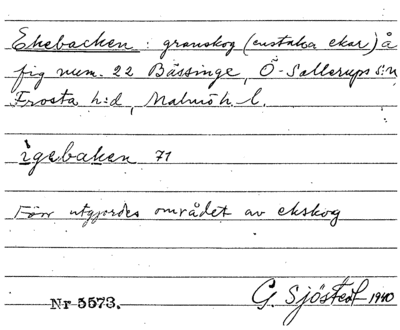 Ekebacken : granskog (enstaka ekar) å
fig num. 22 Bässinge, Ö-Sallerups s:n
Frosta h:d, Malmöh. l.
igebaken 71
Förr utgjordes området av ekskog
Nr 5573. G. Sjöstedt 1940